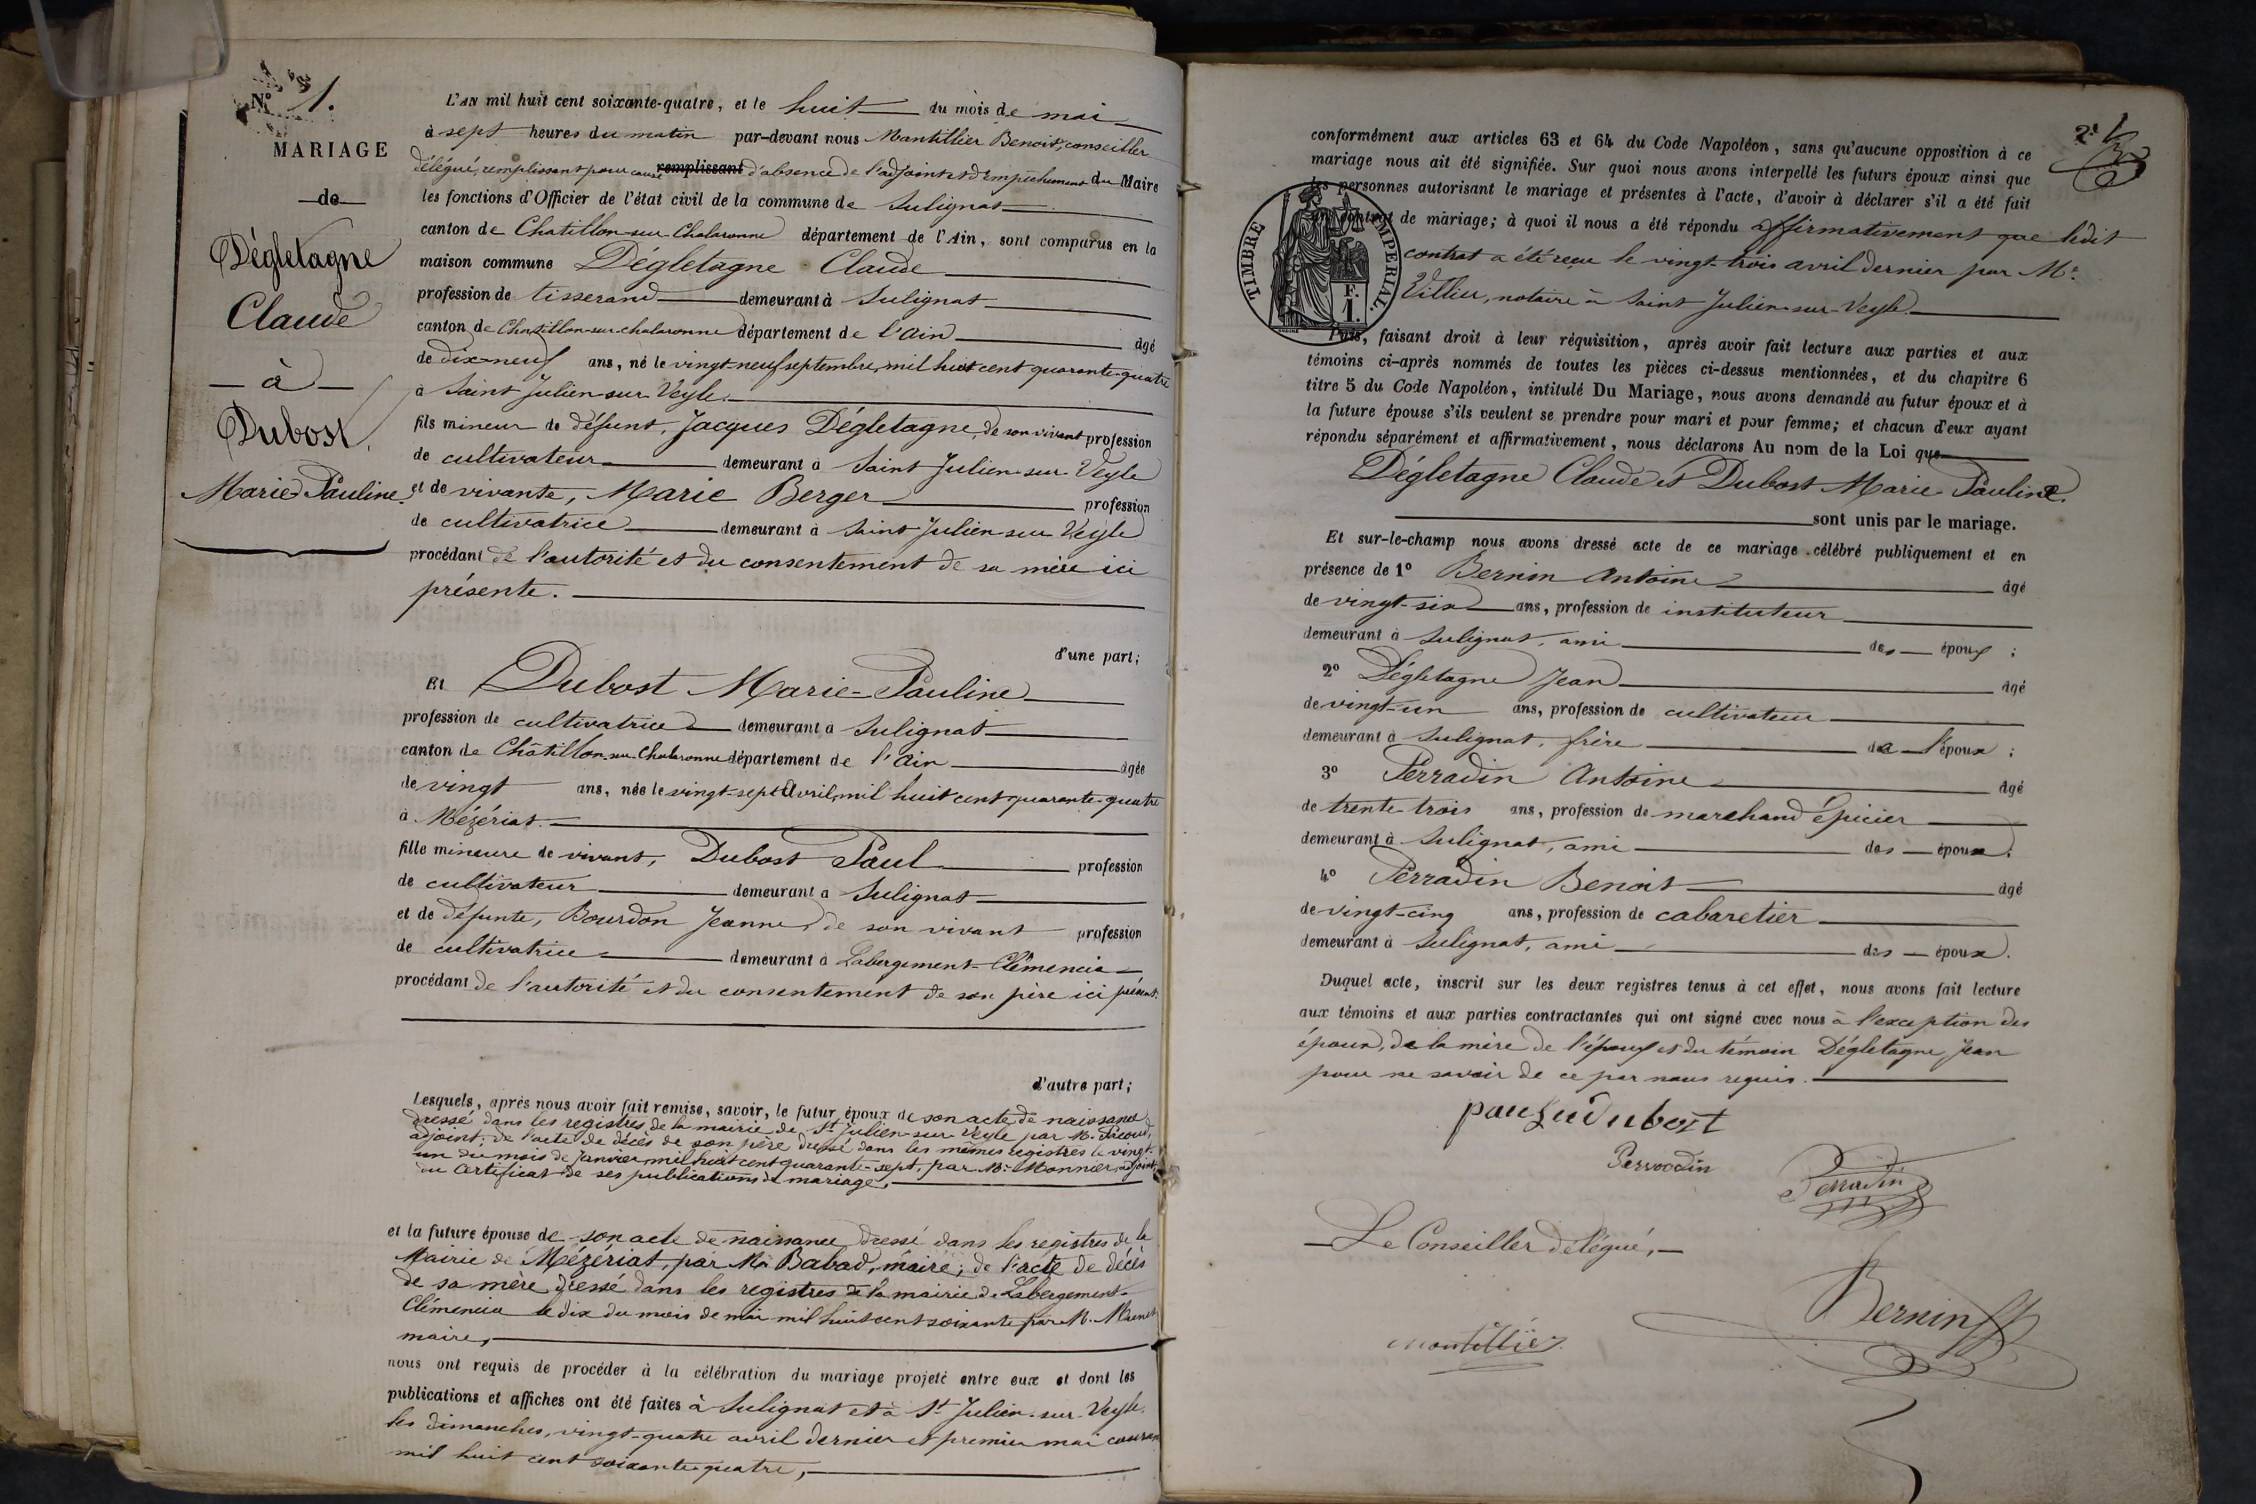 N° 1.
MARIAGE
de
Dégletagne
Claude
à
Dubost
Marie-Pauline
L'AN mil huit cent soixante-quatre, et le huit du mois de mai
à sept heures du matin par-devant nous Mantillier Benoit, conseiller
délégué, remplissant pour cause remplissant d'absence de l'adjoint et d'empêchement du Maire
les fonctions d'Officier de l'état civil de la commune de Sulignat
canton de Chatillon-sur-Chalaronne département de l'Ain, sont comparus en la
maison commune Dégletagne Claude
profession de tisserand demeurant à Sulignat
canton de Chatillon-sur-chalaronne département de l'ain âgé
de dix-neuf ans, né le vingt-neuf septembre, mil huit cent quarante-quatre
à Saint Julien-sur-Veyle.
fils mineur de défunt, Jacques Dégletagne, de son vivant profession
de cultivateur demeurant à Saint Julien-sur-Veyle
et de vivante, Marie Berger profession
de cultivatrice demeurant à Saint Julien-sur Veyle
procédant de l'autorité et du consentement de sa mère ici
présente.
d'une part;
Et Dubost Marie-Pauline
profession de cultivatrice demeurant à Sulignat
canton de Châtillon-sur-Chalaronne département de l'ain âgée
de vingt ans, née le vingt-sept Avril, mil huit cent quarante-quatre
à Mézériat.
fille mineure de vivant, Dubost Paul profession
de cultivateur demeurant à Sulignat
et de défunte, Bourdon Jeanne, de son vivant profession
de cultivatrice demeurant à Labergement-Clémencia
procédant de l'autorité et du consentement de son père ici présent.
d'autre part;
Lesquels, après nous avoir fait remise, savoir, le futur époux de son acte de naissance
dressé dans les registres de la mairie de St Julien-sur Veyle par M.
adjoint; de l'acte de décès de son père dressé dans les mêmes registres le vingt-
un du mois de Janvier, mil huit cent quarante-sept, par Mr Monnier, adjoint
du certificat de ses publications de mariage,
et la future épouse de son acte de naissance dressé dans les registres de la
Mairie de Mézériat, par Mr Babad, maire; de l'acte de décès
de sa mère dressé dans les registres de la mairie de Labergement-
Clémencia le dix du mois de mai mil huit cent soixante par M.
maire,
nous ont requis de procéder à la célébration du mariage projeté entre eux et dont les
publications et affiches ont été faites à Sulignat et à St Julien-sur-Veyle.
les dimanches, vingt-quatre avril dernier et premier mai courant
mil huit cent soixante-quatre,
2e
conformément aux articles 63 et 64 du Code Napoléon, sans qu'aucune opposition à ce
mariage nous ait été signifiée. Sur quoi nous avons interpellé les futurs époux ainsi que
les personnes autorisant le mariage et présentes à l'acte, d'avoir à déclarer s'il a été fait
un contrat de mariage; à quoi il nous a été répondu affirmativement que ledit
contrat a été reçu le vingt-trois avril dernier par Me
Villier, notaire à Saint Julien-sur-Veyle
TIMBRE IMPERIAL.
F.
1.
Puis, faisant droit à leur réquisition, après avoir fait lecture aux parties et aux
témoins ci-après nommés de toutes les pièces ci-dessus mentionnées, et du chapitre 6
titre 5 du Code Napoléon, intitulé Du Mariage, nous avons demandé au futur époux et à
la future épouse s'ils veulent se prendre pour mari et pour femme; et chacun d'eux ayant
répondu séparément et affirmativement, nous déclarons Au nom de la Loi que
Dégletagne Claude et Dubost Marie Pauline.
sont unis par le mariage.
Et sur-le-champ nous avons dressé acte de ce mariage célébré publiquement et en
présence de 1° Bernin Antoine âgé
de vingt-six ans, profession de instituteur
demeurant à Sulignat, ami des époux ;
2° Dégletagne Jean âgé
de vingt-un ans, profession de cultivateur
demeurant à Sulignat, frère de l'époux ;
3° Perradin Antoine âgé
de trente-trois ans, profession de marchand épicier
demeurant à Sulignat, ami des époux.
4° Perradin Benoit âgé
de vingt-cinq ans, profession de cabaretier
demeurant à Sulignat, ami des époux.
Duquel acte, inscrit sur les deux registres tenus à cet effet, nous avons fait lecture
aux témoins et aux parties contractantes qui ont signé avec nous à l'exception des
époux, de la mère de l'époux et du témoin Dégletagne Jean
pour ne savoir de ce par nous requis.
paul dubost
Perradin
Perradin
Le Conseiller délégué,
Bernin
Mantillier